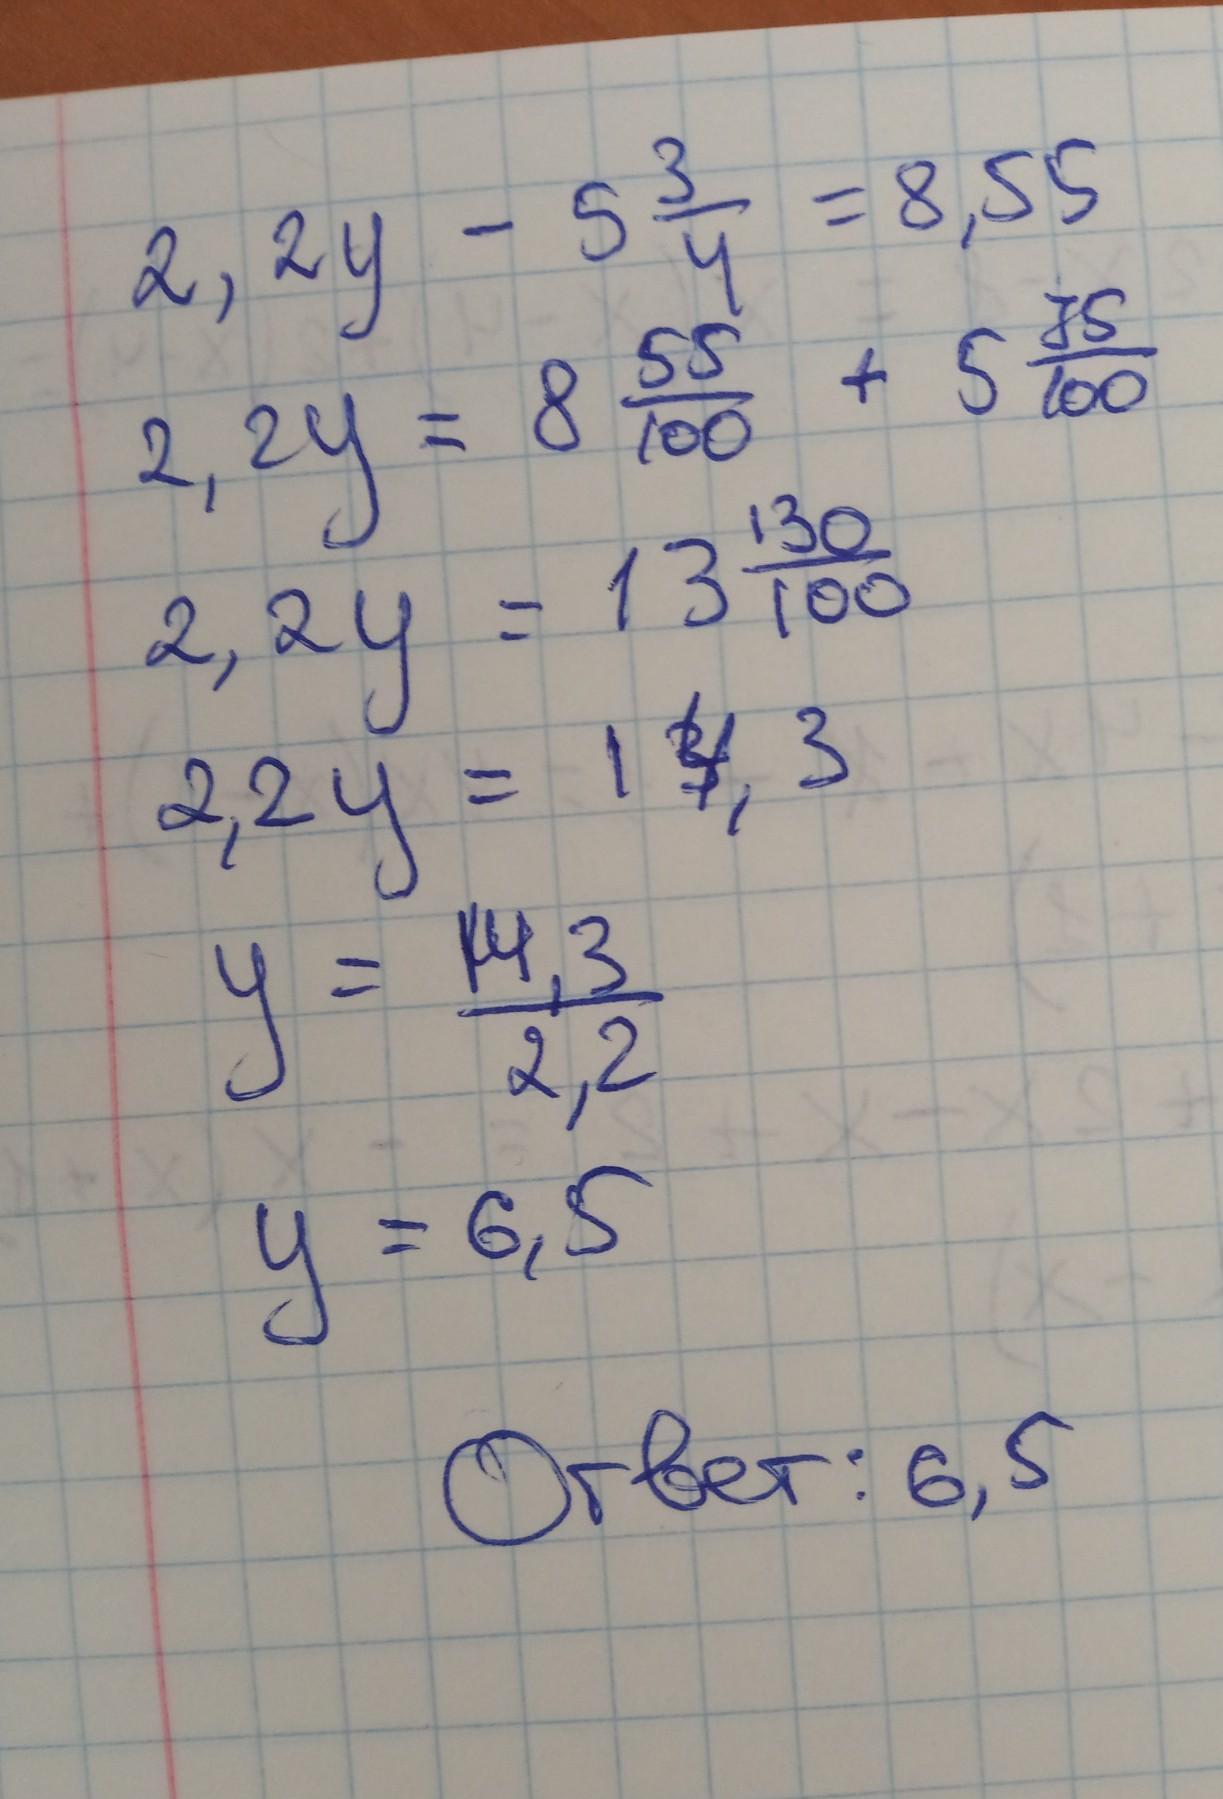 2,2y - 5 3/4 = 8,55
2,2y = 8 55/100 + 5 75/100
2,2y = 13 130/100
2,2y = 14,3
y = 14,3/2,2
y = 6,5
Ответ: 6,5